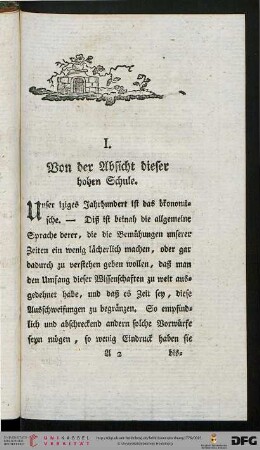 I.
Von der Absicht dieser
hohen Schule.
Unser iziges Jahrhundert ist das ökonomi-
sche. — Diß ist beinah die allgemeine
Sprache derer, die die Bemühungen unserer
Zeiten ein wenig lächerlich machen, oder gar
dadurch zu verstehen geben wollen, daß man
den Umfang dieser Wissenschaften zu weit aus-
gedehnet habe, und daß es Zeit sey, diese
Ausschweifungen zu begränzen. So empfind-
lich und abschreckend andern solche Vorwürfe
seyn mögen, so wenig Eindruck haben sie
A 2 bis-
UNIVERSITÄTS-
BIBLIOTHEK
HEIDELBERG
DFG